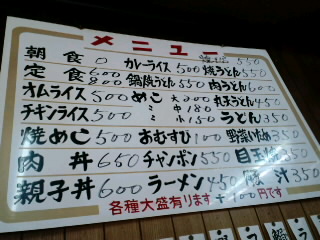 メニュー
朝食 0 カレーライス 500 焼うどん 550
定食 600 800 鍋焼うどん 550 肉うどん 600
オムライス 500 めし 大200 丸天うどん 450
チキンライス 500 〃 中180 うどん 350
焼めし 500 〃 小150
おむすび 100 野菜いため 350
肉丼 650 チャンポン 550 目玉焼 350
親子丼 600 ラーメン 450 豚汁 350
各種大盛有ります +100円です